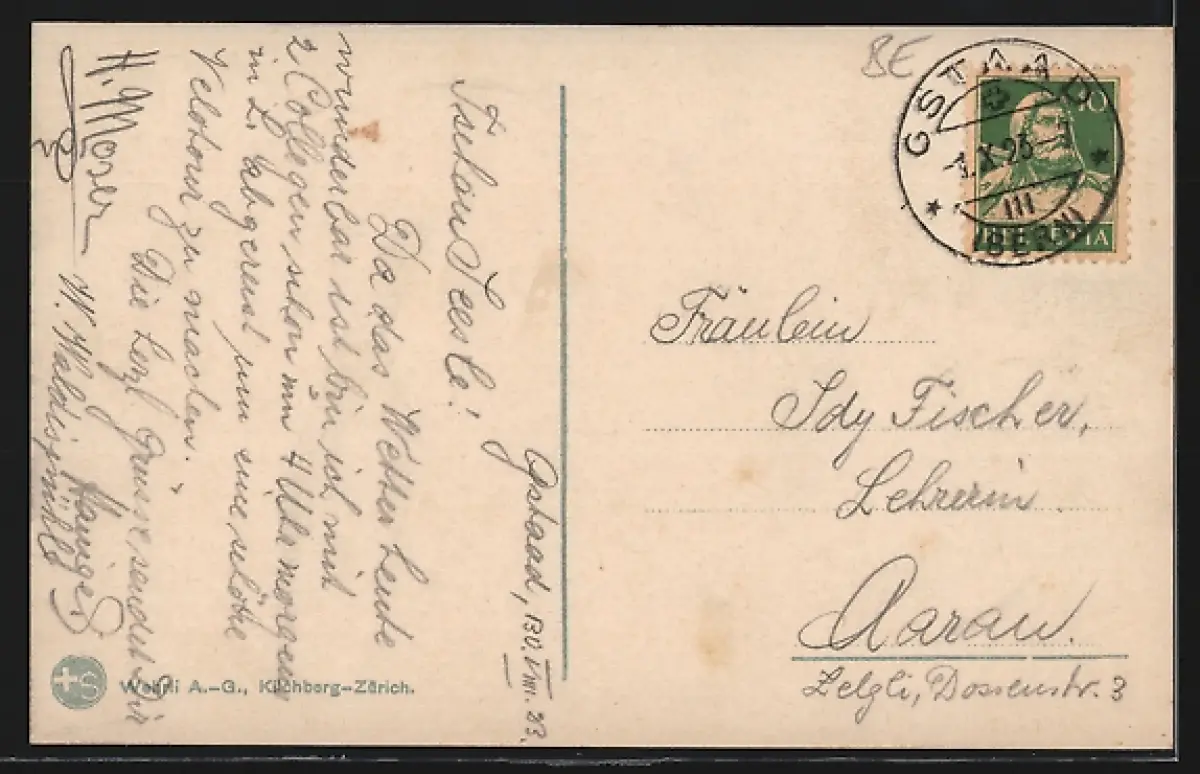 Gstaad, 30. VIII. 23.
Da das Wetter heute
wunderbar ist bin ich mit
2 Collegen schon um 4 Uhr morgens
in Z. abgereist um eine schöne
Velotour zu machen.
Die herzl. Grüsse sendet Dir
W. Haldis
H. Moser
Wehrli A.-G., Kilchberg-Zürich.
BE
GSTAAD
X. 23
III
(BERN)
10
HELVETIA
Fräulein
Idy Fischer,
Lehrerin
Aarau.
Zelgli, Dossenstr. 3